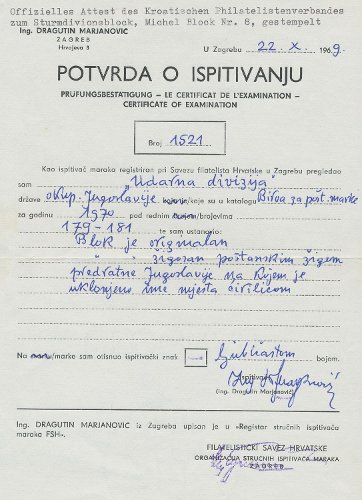 Offizielles Attest des Kroatischen Philatelistenverbandes
zum Sturmdivisonsblock, Michel Block Nr. 6, gestempelt
Ing. DRAGUTIN MARJANOVIĆ
ZAGREB
Hrvojeva 3
U Zagrebu 22. X. 1969
POTVRDA O ISPITIVANJU
PRÜFUNGSBESTÄTIGUNG — LE CERTIFICAT DE L'EXAMINATION —
CERTIFICATE OF EXAMINATION
Broj 1521
Kao ispitivač maraka registriran pri Savezu filatelista Hrvatske u Zagrebu pregledao
sam "Udarna divizija"
države okup. Jugoslavije koja/e/koje su u katalogu Biroa za pošt. marke
za godinu 1970 pod rednim brojem/brojevima
179-181 te sam ustanovio:
Blok je originalan
" " žigosan poštanskim žigom
predratne Jugoslavije na kojem je
uklonjeno ime mjesta ćirilicom
Na marku/marke sam otisnuo ispitivački znak ljubičastom bojom.
Ispitivač
(Ing. Dragutin Marjanović)
Ing. DRAGUTIN MARJANOVIĆ iz Zagreba upisan je u »Registar stručnih ispitivača
maraka FSH«.
FILATELISTIČKI SAVEZ HRVATSKE
ORGANIZACIJA STRUČNIH ISPITIVAČA MARAKA
ZAGREB